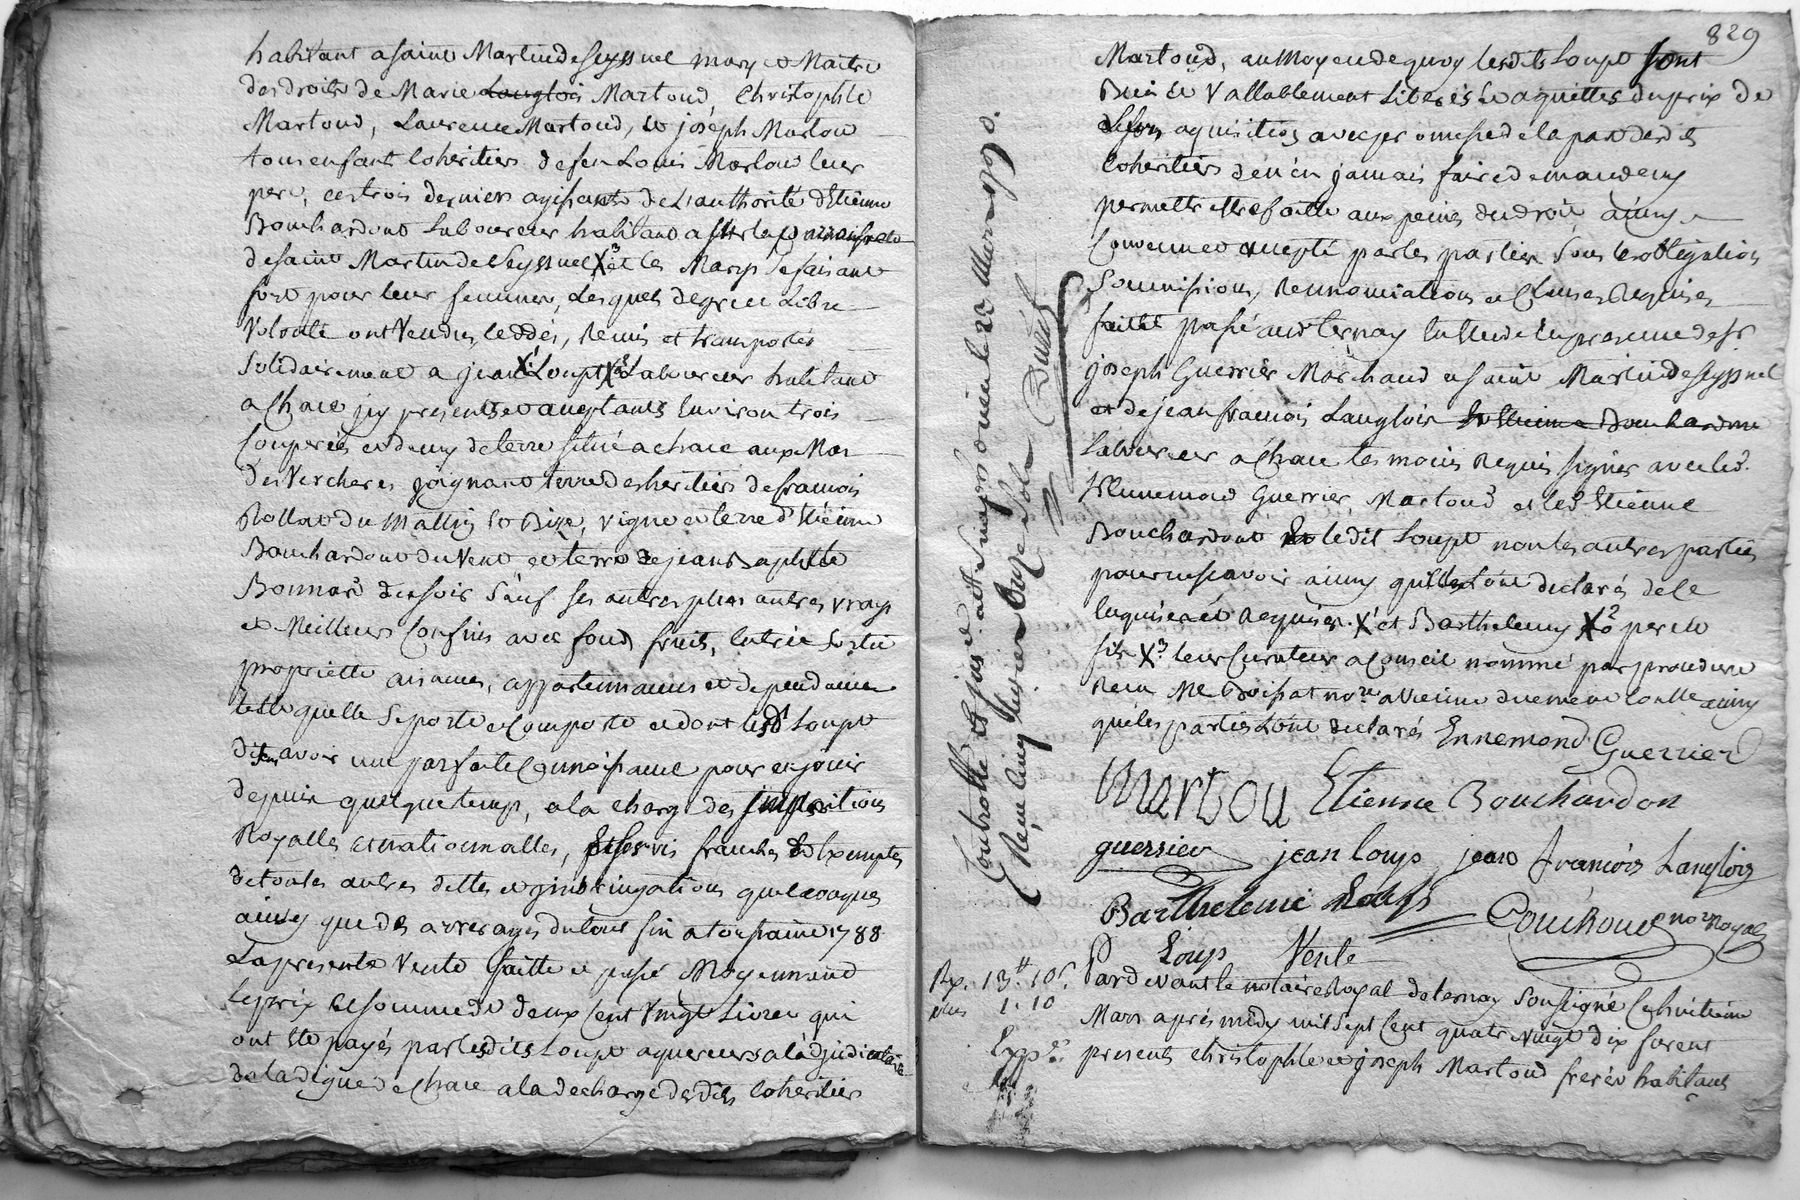 habitant a saint Martin de Seyssuel mary et Maitre
des droits de Marie Langlois Martoud, Christophle
Martoud, Laurence Martoud, et joseph Martou
tous enfants coheritiers de feu Louis Martou leur
pere, ces trois derniers agissants de L'authorité d'Etienne
Bouchardont Laboureur habitant a
de saint Martin de Seyssuel X³ et les Marys se faisant
fort pour leur femmes, Lesquels de gré et Libre
Volonté ont Vendus, ceddés, Remis et transportés
Solidairement a jean X¹ Loupt X² Laboureur habitant
a Chace icy present et aceptants Environ trois
Couperées et demy de terre situé a chace aux Mas
des Vercheres joignant terre des heritiers de francois
Rollat du Mattin et Bize, vigne et terre d'Etienne
Bouchardont du Vent et terre de jean Baptiste
Bonnard du soir Sauf ses autres plus autres vrays
et Meilleurs Confins avec fond, fruits, Entrée Sortie
proprietté aisances, appartenances et dependances
telle quelle Se porte et Comporte et dont lesdt Loupt
disent avoir une parfaite Connoissance pour en jouir
depuis quelque temps, a la charge des Impositions
Royalles et nationnalles, franches et Exemptes
de toutes autres dettes et hinfeingations quelconques
ainsy que des arrerages du tout fin a toussaint 1788
La presente Vente faitte et passé Moyennant
le prix et somme de deux Cent Vingt Livres qui
ont été payés par lesdits Loupt aquereurs a l'adjudicataire
de la digue de Chace a la decharge desdits Coheritiers
829
Martoud, au Moyen de quoy lesdits Loupt sont
Bien et Vallablement Liberés et aquittes du prix de
aquisition avec promesse de la part desdts
Coheritiers d'en en jamais faire demande ny
permettre etre faitte aux peines du droit ainsy
Convenu et accepté par les parties Sous les obligations
Soumissions, Rennonciations et Clauses Requises
fait et passé audt ternay Etude En presence de sr
joseph Guerrier Marchand a saint Martin de Seyssuel
et de jean francois Langlois et Etienne Bouchardon
Laboureur a Chace tesmoins Requis signes avec led.
Ennemond Guerrier, Martoud et led Etienne
Bouchardont et ledit Loupt non les autres parties
pour ne scavoir ainsy qu'elles l'ont declarés de ce
Enquis et Requis. X¹ et Barthelemy X² pere et
fils X³ leur Curateur a Conseil nommé par procedure
Recu Me Boissat nore a Vienne duement Contllé ainsy
que les parties l'ont declarés Ennemond Guerrier
Martou Etienne Bouchardon
guerrier jean loup jean francois Langlois
Barthelemie Loup Couchoud nore Royal
Loup Vente
Pardevant le notaire Royal de ternay Soussigné Ce huitieme
Mars aprés midy mil Sept Cent quatre Vingt dix furent
presents christophle et joseph Martoud freres habitants
Controllé
Reçu Cinq livres onze sols
Rx. 13tt 10s.
1. 10
Expé.